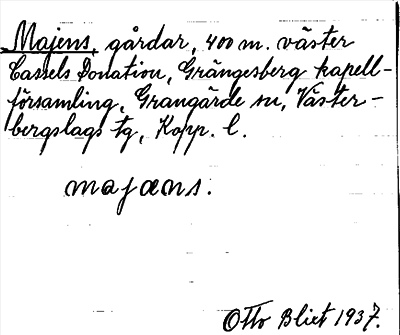 Majens, gårdar, 400 m. väster
Cassels Donation, Grängesberg kapell-
församling, Grangärde sn, Väster-
bergslags tg, Kopp. l.
majæns.
Otto Blixt 1937.